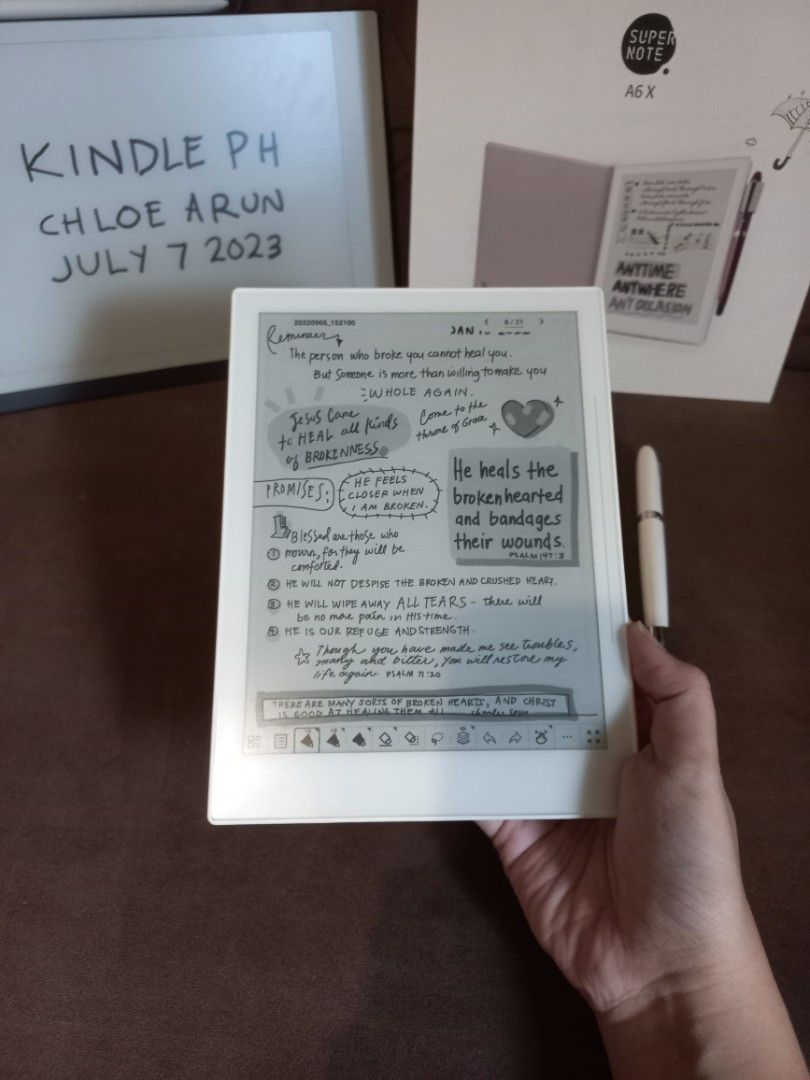 KINDLE PH
CHLOE ARUN
JULY 7 2023
SUPER
NOTE
A6 X
ANYTIME
ANYWHERE
ANY OCCASION
20220905_152100
6 / 21
JAN
Reminder
The person who broke you cannot heal you.
But Someone is more than willing to make you
WHOLE AGAIN.
Jesus Came
to HEAL all kinds
of BROKENNESS
Come to the
throne of Grace
PROMISES:
HE FEELS
CLOSER WHEN
I AM BROKEN.
He heals the
brokenhearted
and bandages
their wounds.
PSALM 147:3
① Blessed are those who
mourn, for they will be
comforted.
② HE WILL NOT DESPISE THE BROKEN AND CRUSHED HEART.
③ HE WILL WIPE AWAY ALL TEARS - there will
be no more pain in His time.
④ HE IS OUR REFUGE AND STRENGTH.
Though you have made me see troubles,
many and bitter, you will restore my
life again PSALM 71:20
THERE ARE MANY SORTS OF BROKEN HEARTS, AND CHRIST
IS GOOD AT HEALING THEM ALL